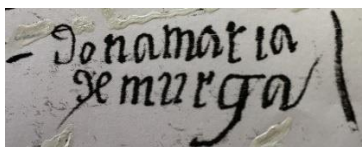 - donamaria
de murga